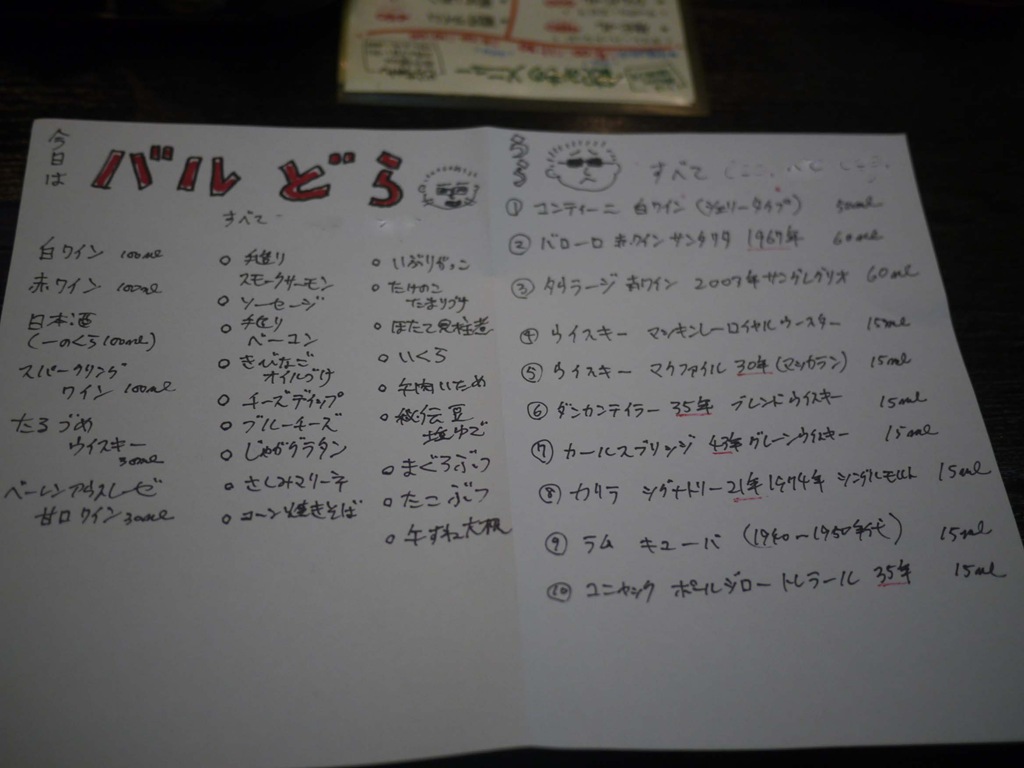 今日は
バルどら
すべて
白ワイン 100ml
赤ワイン 100ml
日本酒
(一のくら100ml)
スパークリング
ワイン 100ml
たるづめ
ウイスキー
30ml
ベーレンアウスレーゼ
甘口ワイン 30ml
○ 手造り
スモークサーモン
○ ソーセージ
○ 手造り
ベーコン
○ きびなご
オイルづけ
○ チーズディップ
○ ブルーチーズ
○ じゃがグラタン
○ さしみマリーネ
○ コーン焼きそば
○ いぶりがっこ
○ たけのこ
たまりづけ
○ ほたて貝柱煮
○ いくら
○ 牛肉いため
○ 秘伝豆
塩ゆで
○ まぐろぶつ
○ たこぶつ
○ 牛すね大根
すべて
① コンティーニ 白ワイン (シェリータイプ) 50ml
② バローロ 赤ワイン サンタリタ 1967年 60ml
③ タウラージ 赤ワイン 2007年 サングレゴリオ 60ml
④ ウイスキー マッキンレーロイヤルウースター 15ml
⑤ ウイスキー マクファイル 30年 (マッカラン) 15ml
⑥ ダンカンテイラー 35年 ブレンドウイスキー 15ml
⑦ カールスブリッジ 43年 グレーンウイスキー 15ml
⑧ カリラ シグナトリー 21年 1974年 シングルモルト 15ml
⑨ ラム キューバ (1940〜1950年代) 15ml
⑩ コニャック ポールジロー トレラール 35年 15ml